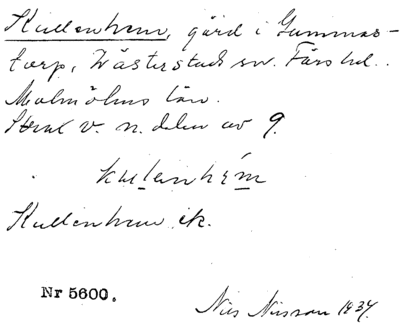 Kullenhem, gård i Gummas-
torp, Västerstads sn. Färs hd.
Malmöhus län.
Strax v. n. delen av 9.
kulenhém
Kullenhem ek.
Nr 5600.
Nils Nilsson 1934.